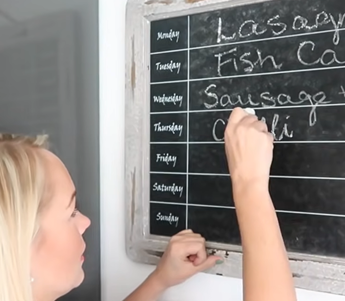 Monday Lasagn
Tuesday Fish Ca
Wednesday Sausage +
Thursday Chilli
Friday
Saturday
Sunday